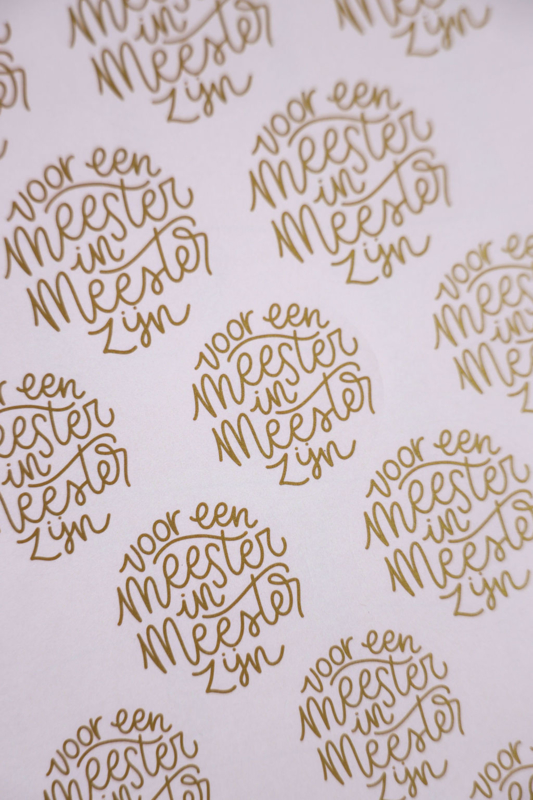 in
Meester
zijn
Meester
zijn
voor een
Meester
in
Meester
zijn
voor een
Meester
in
Meester
zijn
voor
in
voor een
Meester
in
Meester
zijn
een
in
zijn
voor een
Meester
in
Meester
zijn
voor een
Meester
in
Meester
zijn
voor een
Meester
in
Meester
zijn
voor een
Meester
in
Meester
voor